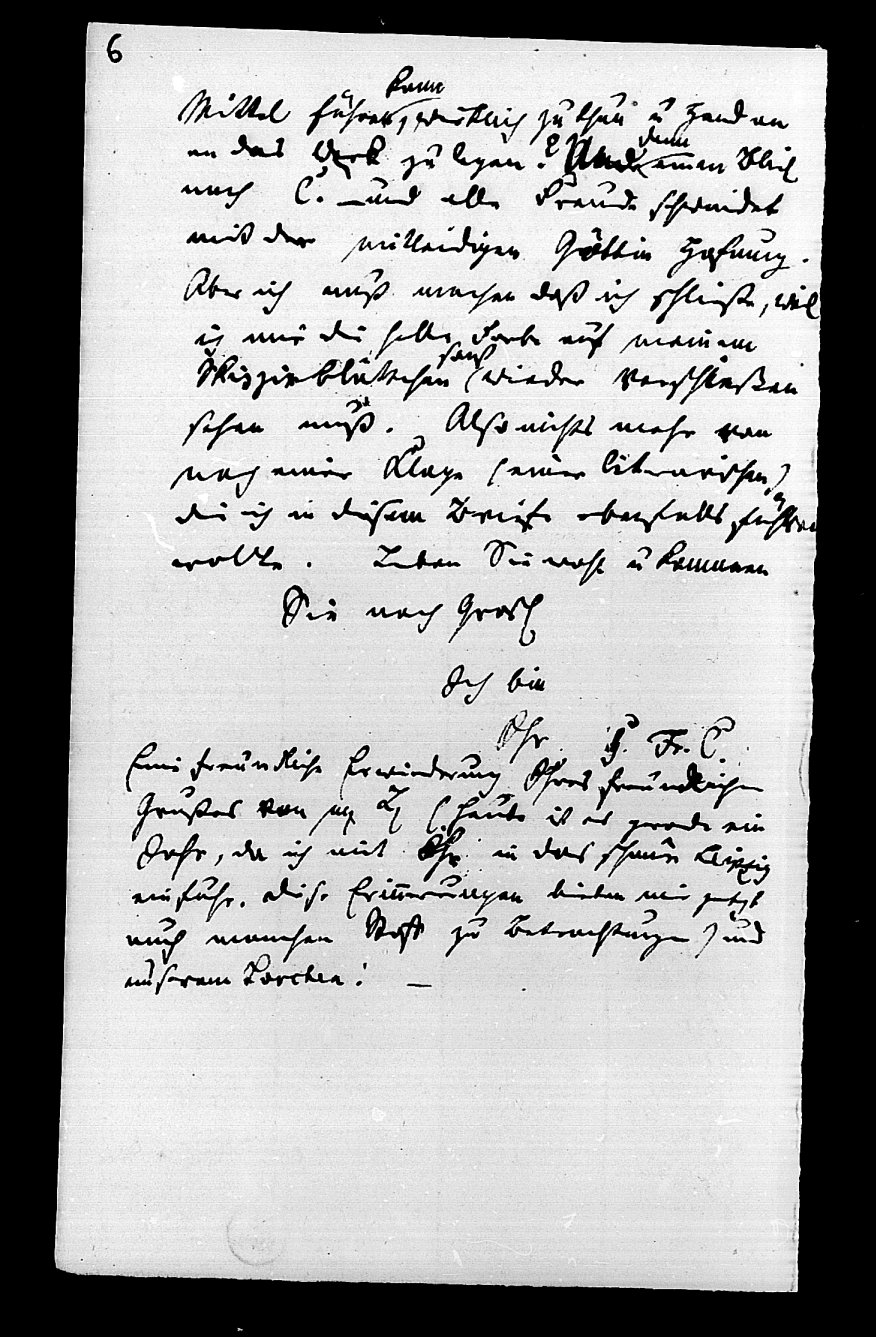 6
kann
Mittel führen, wirklich zu thun u Hand an
an das Werk zu legen? Und dann einen Blick
nach C. – und alle Freude schwindet
mit der mitleidigen Göttin Hofnung.
Aber ich muß machen daß ich schließe, weil
ich mir die helle Farbe auf meinem
Skizzirblättchen sonst wieder verschießen
sehen muß. Also nichts mehr von
noch einer Klage (einer literarischen)
die ich in diesem Briefe ebenfalls führen
wollte. Leben Sie wohl u kommen
Sie nach Gros
Ich bin
Ihr Fr. C.
Eine freundliche Erwiederung Ihres freundlichen
Grußes von (heute ist es grade ein
Jahr, da ich mit Ihr in das schöne Leipzig
einfuhr. diese Erinnerungen bieten mir jetzt
auch manchen Stoff zu Betrachtungen) und
unserem Lorchen! –